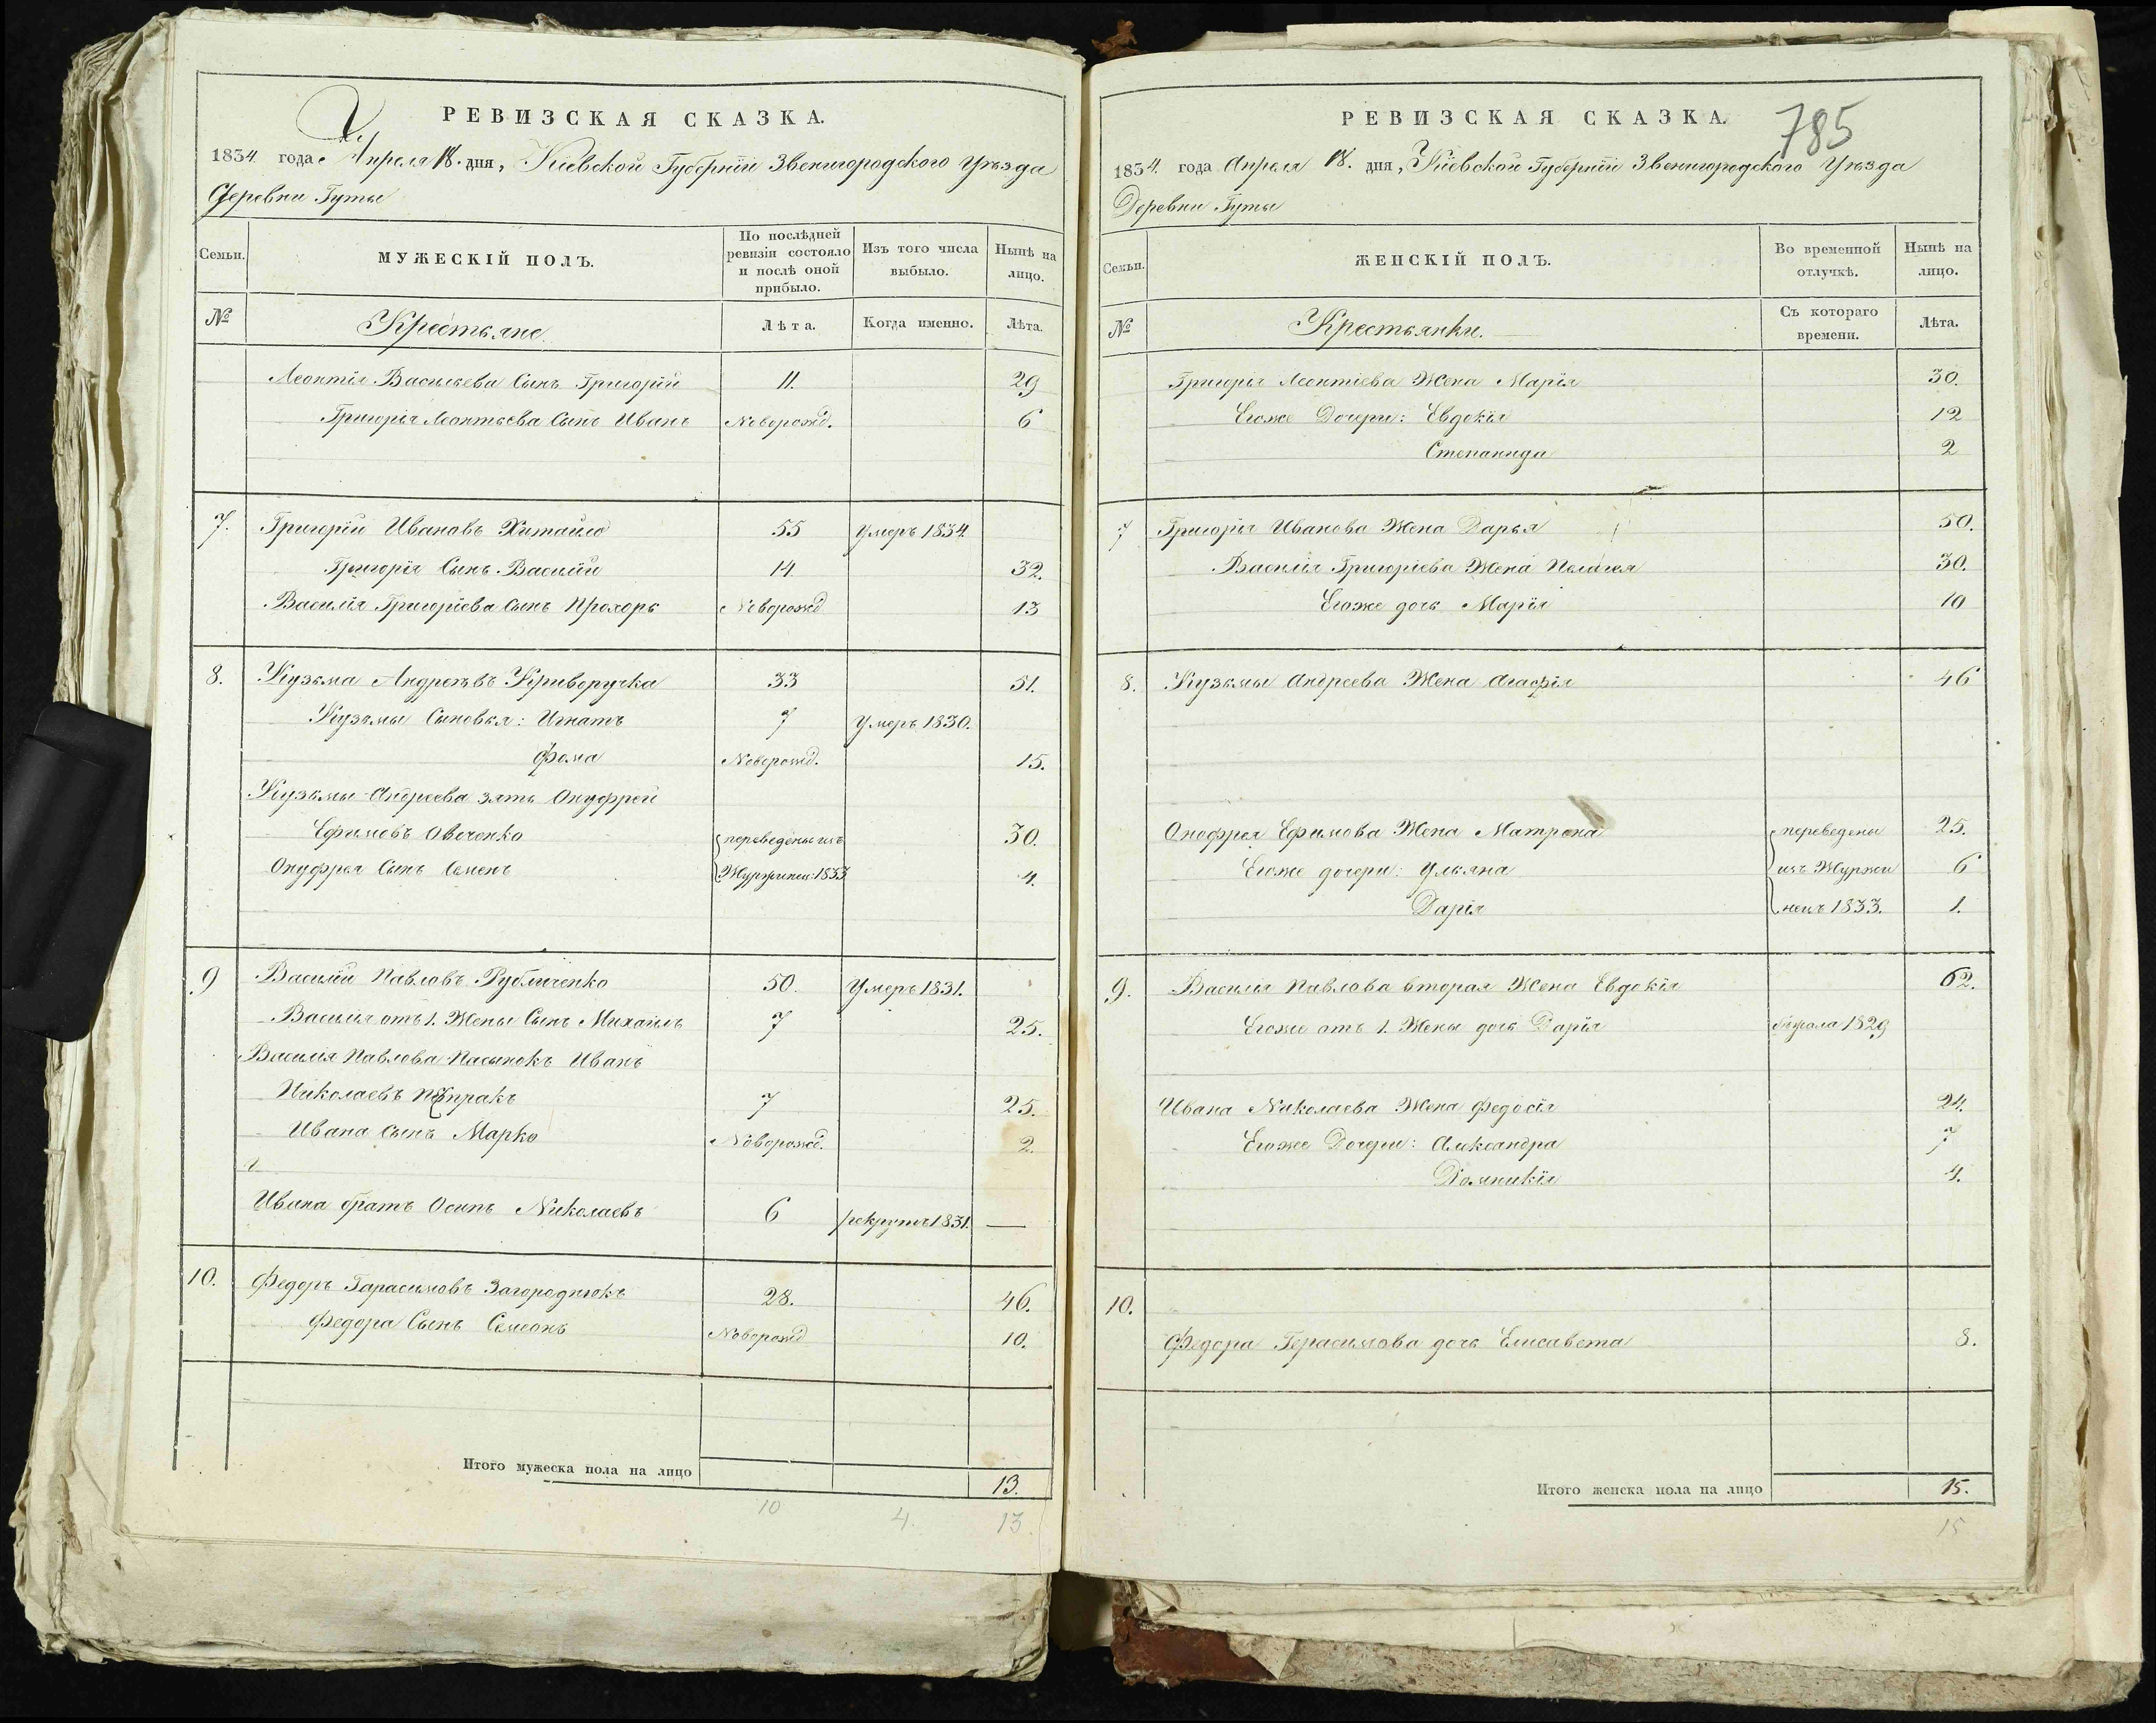 РЕВИЗСКАЯ СКАЗКА.
1834 года Апреля 18. дня, Кіевской Губерніи Звенигородского Уѣзда
Деревни Гуты
Семьи.
МУЖЕСКІЙ ПОЛЪ.
По послѣдней ревизіи состояло и послѣ оной прибыло.
Изъ того числа выбыло.
Нынѣ на лицо.
№
Крестьяне.
Лѣта.
Когда именно.
Лѣта.
Леонтія Васильева Сынъ Григорій 11. 29
Григорія Леонтьева Сынъ Иванъ Новорожд. 6
7. Григорій Ивановъ Хитайло 55 Умеръ 1834
Григорія Сынъ Василій 14 32.
Василія Григоріева Сынъ Прохоръ Новорожд 13
8. Кузьма Андреевъ Криворучка 33 51.
Кузьмы Сыновья: Игнатъ 7 Умеръ 1830.
Фома Новорожд. 15.
Кузьмы Андреева зять Онуфрей
Ефимовъ Овченко переведены изъ 30.
Онуфрея Сынъ Семенъ Журжинец: 1833 4.
9 Василій Павловъ Рубличенко 50. Умеръ 1831.
Василія отъ 1. Жены Сынъ Михаилъ 7 25.
Василія Павлова Пасынокъ Иванъ
Николаевъ 7 25.
Ивана Сынъ Марко Новорожд. 2.
Ивана братъ Осипъ Николаевъ 6 рекрутъ 1831. —
10. Федоръ Гарасимовъ Загороднюкъ 28. 46.
Федора Сынъ Семенъ Новорожд 10.
Итого мужеска пола на лицо 13.
10 4. 13.
РЕВИЗСКАЯ СКАЗКА.
785
1834. года Апреля 18. дня, Кіевской Губерніи Звенигородского Уѣзда
Деревни Гуты
Семьи.
ЖЕНСКІЙ ПОЛЪ.
Во временной отлучкѣ.
Нынѣ на лицо.
№
Крестьянки.
Съ котораго времени.
Лѣта.
Григорія Леонтіева Жена Марія 30.
Егоже Дочери: Евдокія 12
Степанида 2
7 Григорія Иванова Жена Дарья 50.
Василія Григоріева Жена Пелагея 30.
Егоже дочь Марія 10
8. Кузьмы Андреева Жена Агафія 46
Онофрея Ефимова Жена Матрона переведены 25.
Егоже дочери: Ульяна изъ Журжи 6
Дарія нецъ 1833. 1.
9. Василія Павлова вторая Жена Евдокія 62.
Егоже отъ 1. Жены дочь Дарія 1829
Ивана Николаева Жена Федосія 24.
Егоже Дочери: Александра 7
Домникія 4.
10.
Федора Герасимова дочь Елисавета 8.
Итого женска пола на лицо 15.
15